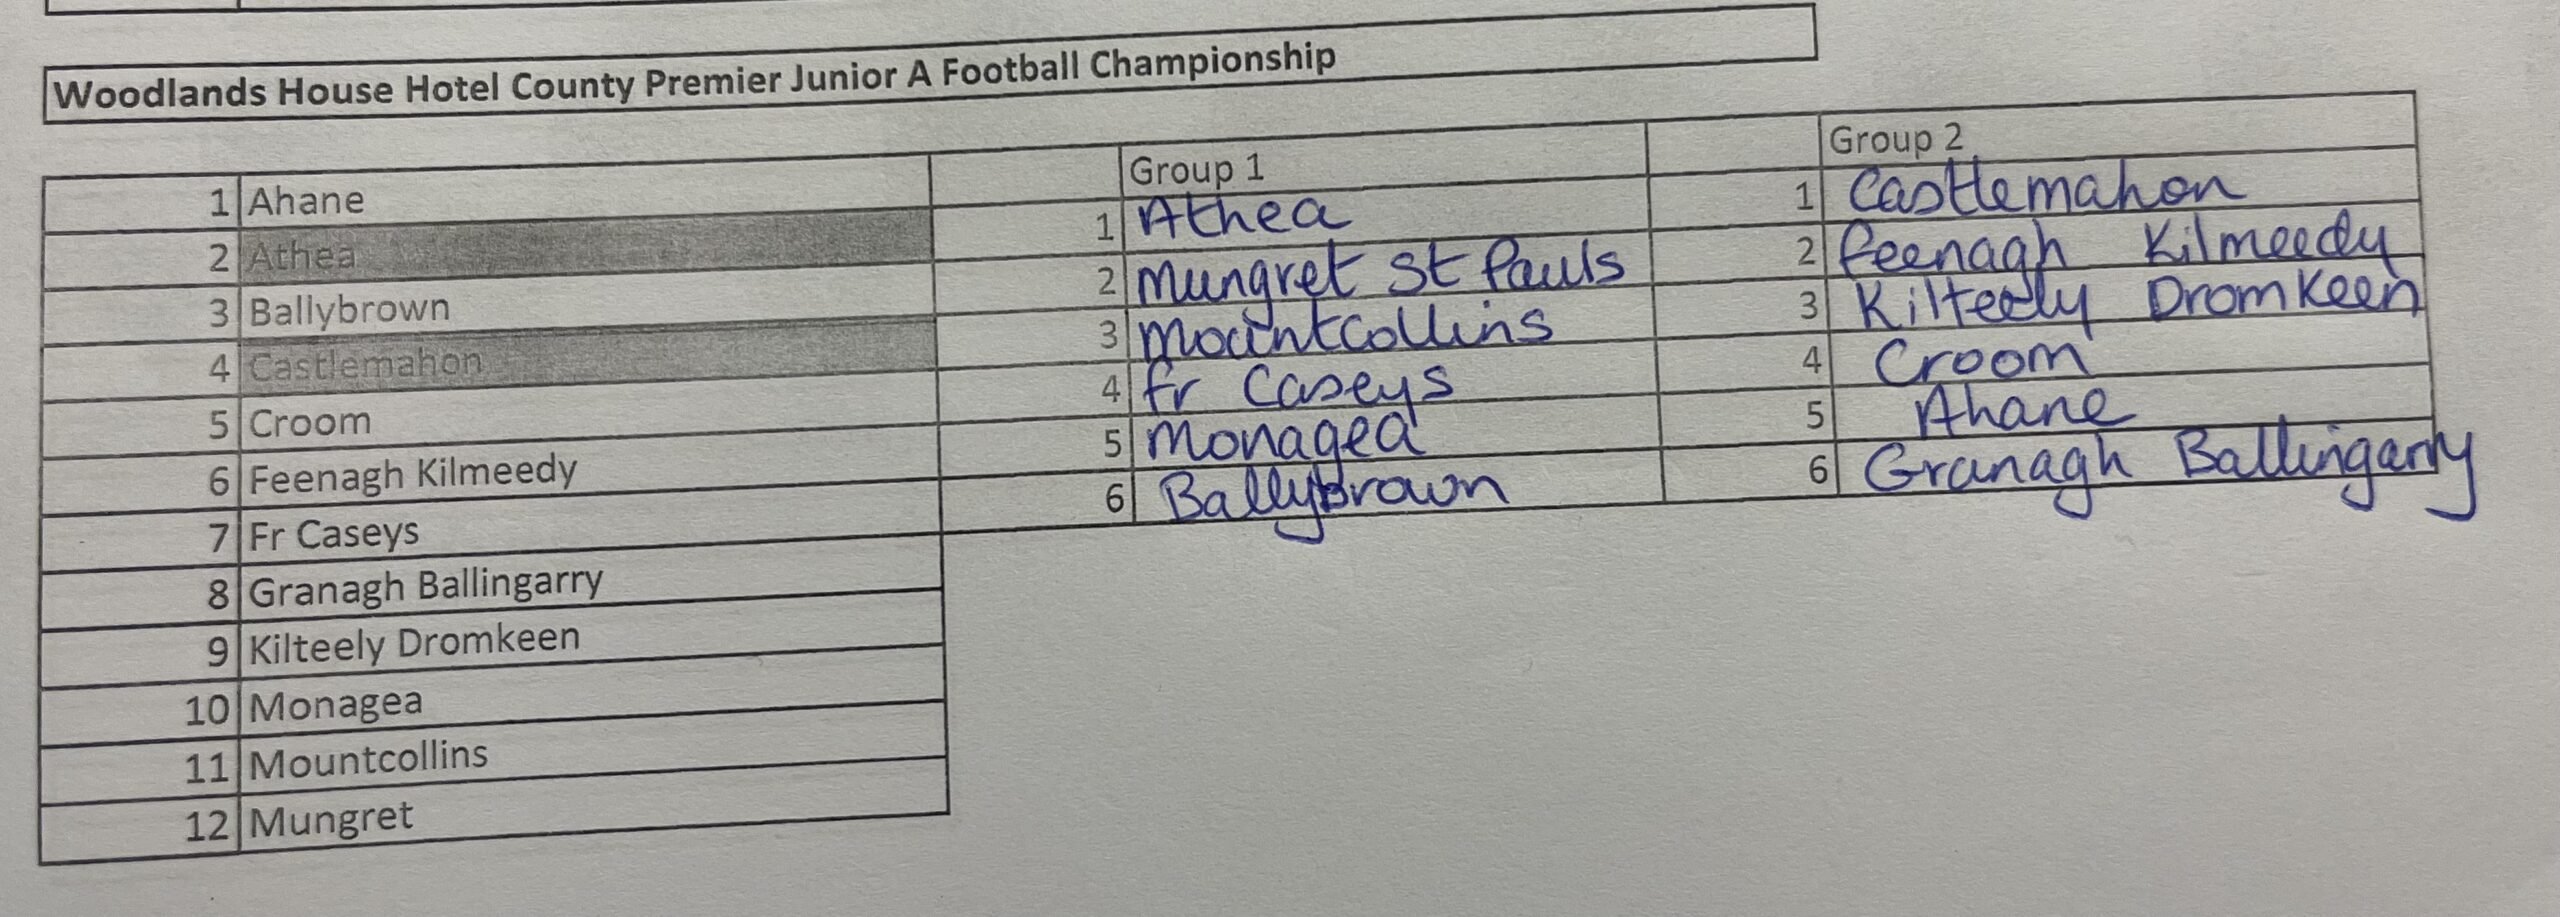 Woodlands House Hotel County Premier Junior A Football Championship
Group 1 Group 2
1 Ahane 1 Athea 1 Castlemahon
2 Athea 2 Mungret St Pauls 2 Feenagh Kilmeedy
3 Ballybrown 3 Mountcollins 3 Kilteely Dromkeen
4 Castlemahon 4 Fr Caseys 4 Croom
5 Croom 5 Monagea 5 Ahane
6 Feenagh Kilmeedy 6 Ballybrown 6 Granagh Ballingarry
7 Fr Caseys
8 Granagh Ballingarry
9 Kilteely Dromkeen
10 Monagea
11 Mountcollins
12 Mungret